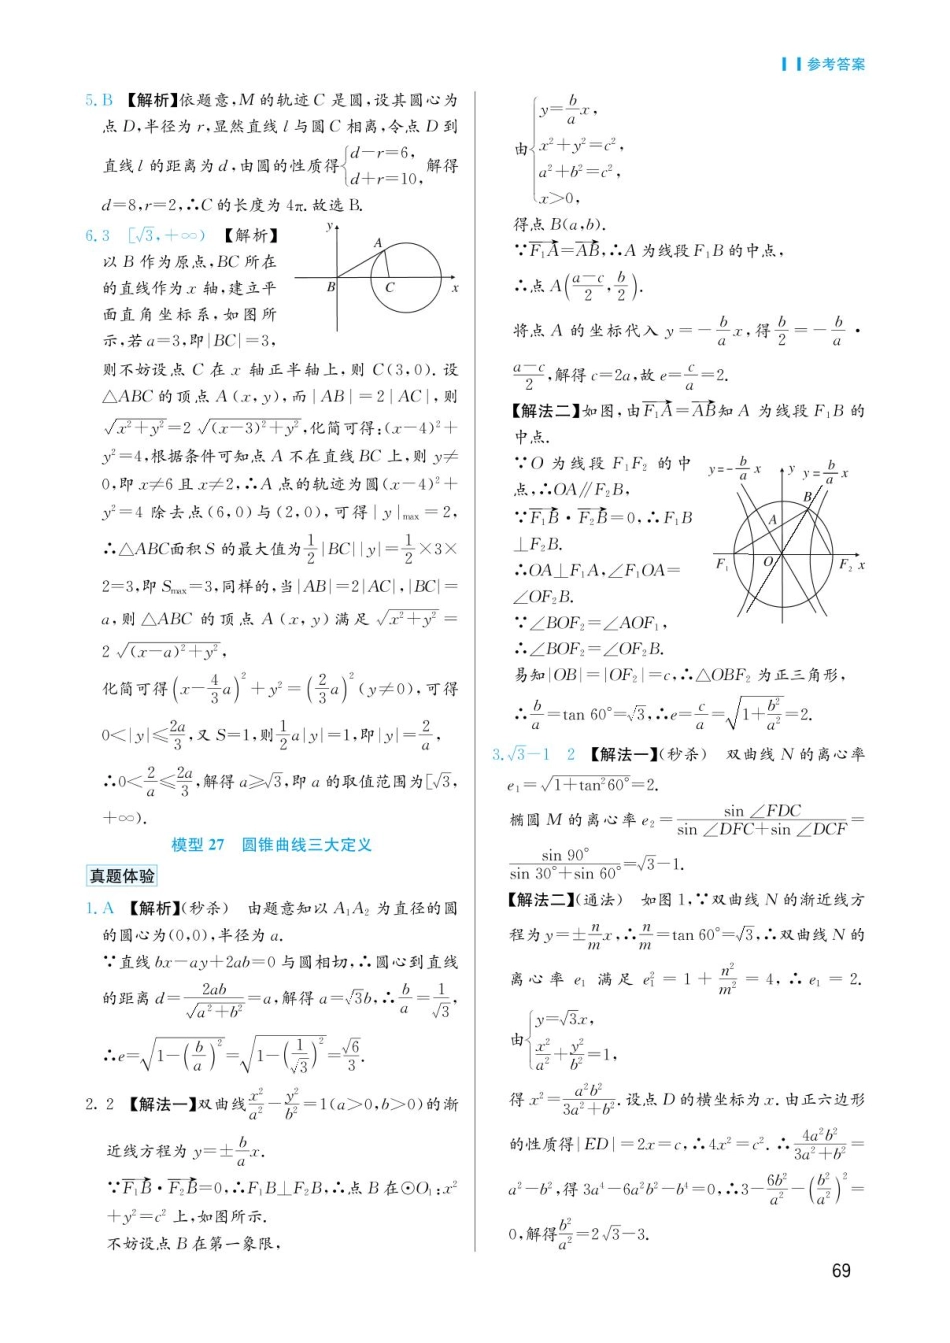 参考答案
5. B 【解析】依题意,M 的轨迹 C 是圆,设其圆心为
点 D,半径为 r,显然直线 l 与圆 C 相离,令点 D 到
直线 l 的距离为 d,由圆的性质得{d-r=6, d+r=10, 解得
d=8,r=2,∴C 的长度为 4π. 故选 B.
6. 3 [√3,+∞) 【解析】
以 B 作为原点,BC 所在
的直线作为 x 轴,建立平
面直角坐标系,如图所
示,若 a=3,即|BC|=3,
y
A
B
C
x
则不妨设点 C 在 x 轴正半轴上,则 C(3,0). 设
△ABC 的顶点 A(x,y),而|AB|=2|AC|,则
√(x²+y²)=2√((x-3)²+y²),化简可得:(x-4)²+
y²=4,根据条件可知点 A 不在直线 BC 上,则 y≠
0,即 x≠6 且 x≠2,∴A 点的轨迹为圆(x-4)²+
y²=4 除去点(6,0)与(2,0),可得|y|max=2,
∴△ABC面积 S 的最大值为1/2|BC||y|=1/2×3×
2=3,即 Smax=3,同样的,当|AB|=2|AC|,|BC|=
a,则△ABC 的顶点 A(x,y)满足√(x²+y²)=
2√((x-a)²+y²),
化简可得(x-4/3a)²+y²=(2/3a)²(y≠0),可得
0<|y|≤2a/3,又 S=1,则1/2a|y|=1,即|y|=2/a,
∴0<2/a≤2a/3,解得 a≥√3,即 a 的取值范围为[√3,
+∞).
模型 27 圆锥曲线三大定义
真题体验
1. A 【解析】(秒杀) 由题意知以 A₁A₂ 为直径的圆
的圆心为(0,0),半径为 a.
∵直线 bx-ay+2ab=0 与圆相切,∴圆心到直线
的距离 d=2ab/√(a²+b²)=a,解得 a=√3b,∴b/a=1/√3,
∴e=√(1-(b/a)²)=√(1-(1/√3)²)=√6/3.
2. 2 【解法一】双曲线x²/a²-y²/b²=1(a>0,b>0)的渐
近线方程为 y=±b/a x.
∵F₁B·F₂B=0,∴F₁B⊥F₂B,∴点 B 在⊙O₁:x²
+y²=c² 上,如图所示.
不妨设点 B 在第一象限,
由{y=b/a x,
x²+y²=c²,
a²+b²=c²,
x>0,
得点 B(a,b).
∵F₁A=AB,∴A 为线段 F₁B 的中点,
∴点 A((a-c)/2,b/2).
将点 A 的坐标代入 y=-b/a x,得b/2=-b/a·
(a-c)/2,解得 c=2a,故 e=c/a=2.
【解法二】如图,由F₁A=AB知 A 为线段 F₁B 的
中点.
∵O 为线段 F₁F₂ 的中
点,∴OA∥F₂B,
∵F₁B·F₂B=0,∴F₁B
⊥F₂B.
∴OA⊥F₁A,∠F₁OA=
∠OF₂B.
∵∠BOF₂=∠AOF₁,
y=-b/a x
y
y=b/a x
B
A
F₁
O
F₂ x
∴∠BOF₂=∠OF₂B.
易知|OB|=|OF₂|=c,∴△OBF₂ 为正三角形,
∴b/a=tan 60°=√3,∴e=c/a=√(1+b²/a²)=2.
3. √3-1 2 【解法一】(秒杀) 双曲线 N 的离心率
e₁=√(1+tan²60°)=2.
椭圆 M 的离心率 e₂=sin∠FDC/(sin∠DFC+sin∠DCF)=
sin 90°/(sin 30°+sin 60°)=√3-1.
【解法二】(通法) 如图 1,∵双曲线 N 的渐近线方
程为 y=±n/m x,∴n/m=tan 60°=√3,∴双曲线 N 的
离心率 e₁ 满足 e₁²=1+n²/m²=4,∴e₁=2.
由{y=√3x,
x²/a²+y²/b²=1,
得 x²=a²b²/(3a²+b²). 设点 D 的横坐标为 x. 由正六边形
的性质得|ED|=2x=c,∴4x²=c². ∴4a²b²/(3a²+b²)=
a²-b²,得 3a⁴-6a²b²-b⁴=0,∴3-6b²/a²-(b²/a²)²=
0,解得b²/a²=2√3-3.
69